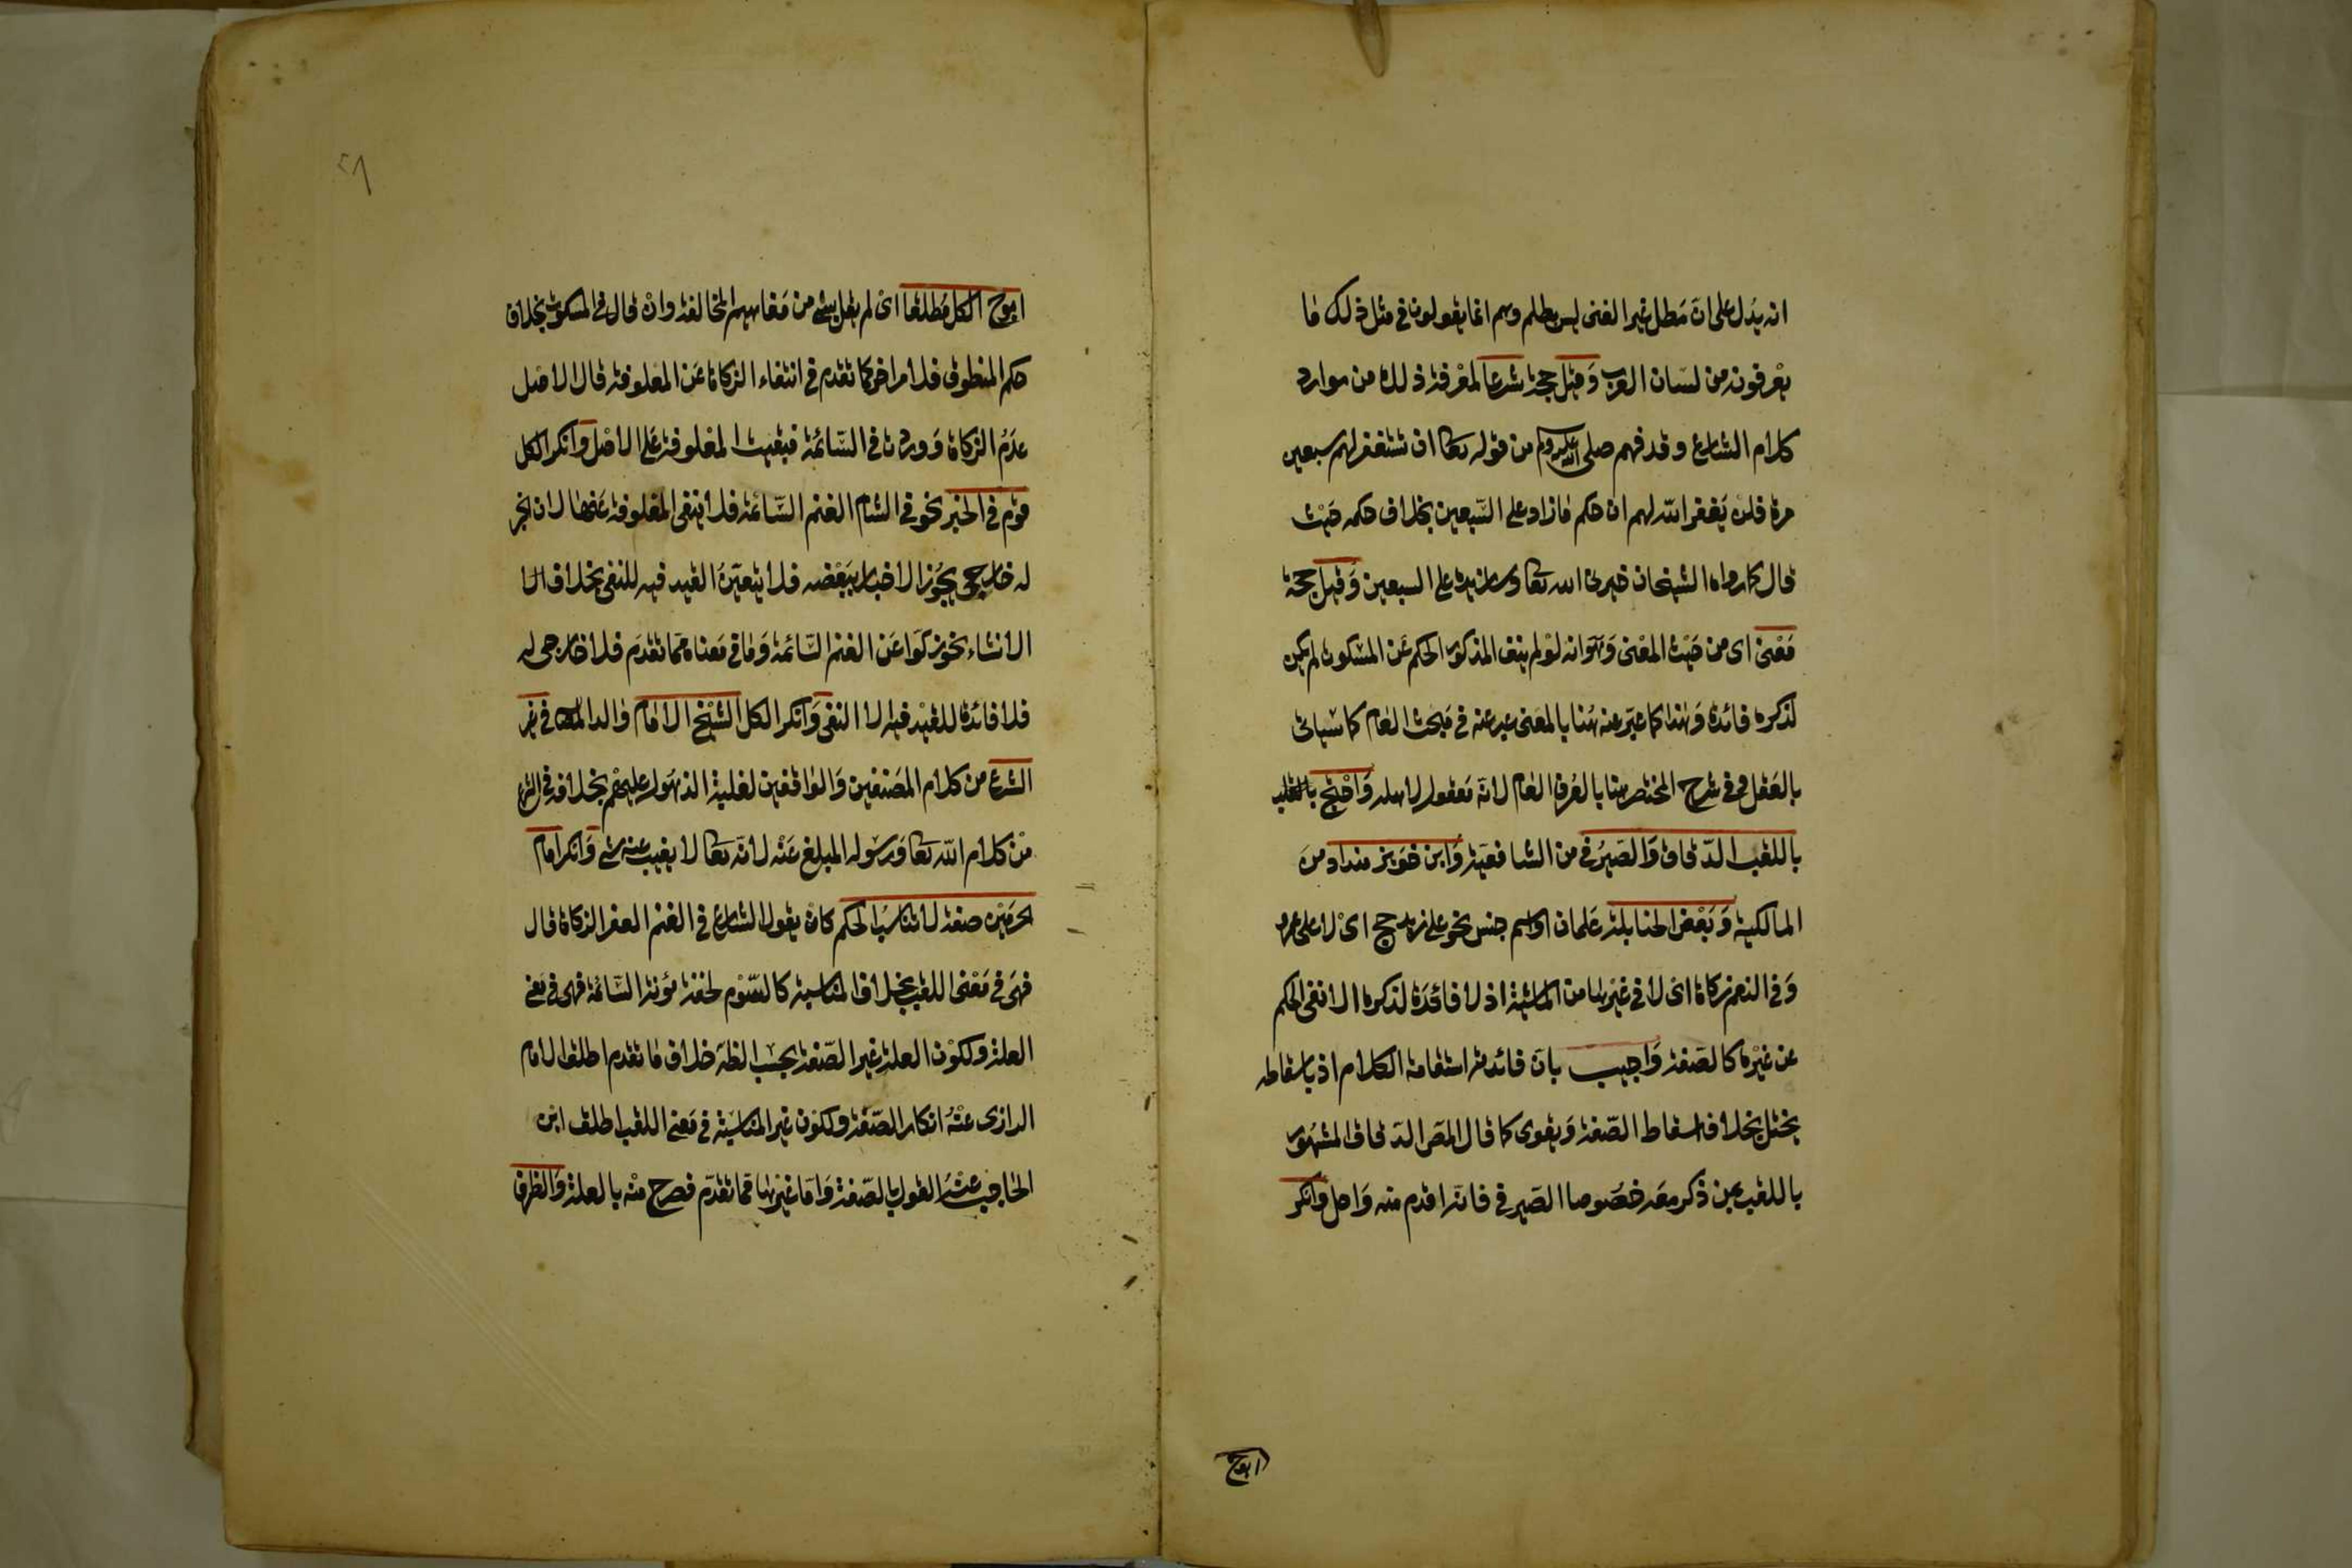 انه يدل على ان مطل غير الغنى ليس بظلم وهم انما يقولون في مثل ذلك ما
يعرفونه من لسان العرب وقيل حجة شرعا لمعرفة ذلك من موارد
كلام الشارع وقد فهم صلى الله عليه وسلم من قوله تعا ان تستغفر لهم سبعين
مرة فلن يغفر الله لهم ان حكم ما زاد على السبعين بخلاف حكمه حيث
قال كما رواه الشيخان خيرنى الله تعا وسازيده على السبعين وقيل حجة
معنى اى من حيث المعنى وهو انه لو لم ينف المذكور الحكم عن المسكوت لم يكن
لذكره فائدة وهذا كما عبر عنه هنا بالمعنى عبر عنه في مبحث العام كما سياتى
بالعقل وفي شرح المختصر هنا بالعرف العام لانه معقول لاهله واحتج
باللقب الدقاق والصيرفي من الشافعية وابن خويز منداد من
المالكية وبعض الحنابلة علما كان او اسم جنس نحو على زيد حج اى لا على عمرو
وفي النعم زكاة اى لا في غيرها من الماشية اذ لا فائدة لذكره الا نفى الحكم
عن غيره كالصفة واجيب بان فائدته استقامة الكلام اذ باسقاطه
يختل بخلاف اسقاط الصفة ويقوى كما قال المص الدقاق المشهور
باللقب بمن ذكر معه خصوصا الصيرفي فانه اقدم منه واجل وانكر
ابوح
٢٨
ابوح الكل مطلقا اى لم يقل بشئ من مفاهيم المخالفة وان قال في المسكوت بخلاف
حكم المنطوق فلامر اخر كما تقدم في انتفاء الزكاة عن المعلوفة قال الاصل
عدم الزكاة ووردت في السائمة فبقيت المعلوفة على الاصل وانكر الكل
قوم في الخبر نحو في الشام الغنم السائمة فلا ينفى المعلوفة عنها لان الخبر
له خارجى يجوز الاخبار ببعضه فلا يتعين القيد فيه للنفى بخلاف الا
الانشاء نحو زكوا عن الغنم السائمة وما في معناه مما تقدم فلا خارجى له
فلا فائدة للقيد فيه الا النفى وانكر الكل الشيخ الامام والد المص في غير
الشرع من كلام المصنفين والواقفين لغلبة الذهول عليهم بخلافه في الشرع
من كلام الله تعا ورسوله المبلغ عنه لانه تعا لا يغيب عنه شئ وانكر امام
الحرمين صفة لا تناسب الحكم كان يقول الشارع في الغنم العفر الزكاة قال
فهى في معنى اللقب بخلاف المناسبة كالسوم لخفة مؤنة السائمة فهى في معنى
العلة ولكون العلة غير الصفة بحسب الظاهر خلاف ما تقدم اطلق الامام
الرازى عنه انكار الصفة ولكون غير المناسبة في معنى اللقب اطلق ابن
الحاجب عنه القول بالصفة واما غيرها مما تقدم فصرح منه بالعلة والظرف